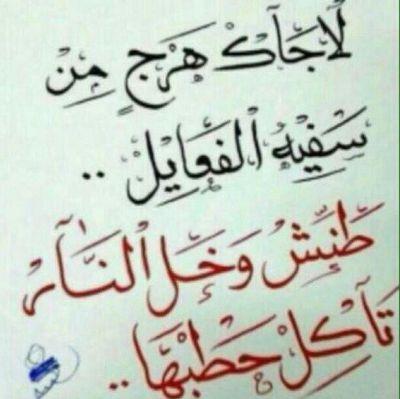 لَا جَآكْ هَرْجٍ مِنْ
سَفِيْهْ الْفَعَايِلْ ..
طَنِّشْ وَخَلْ النَّآرْ
تَآكِلْ حَطَبْهَا ..